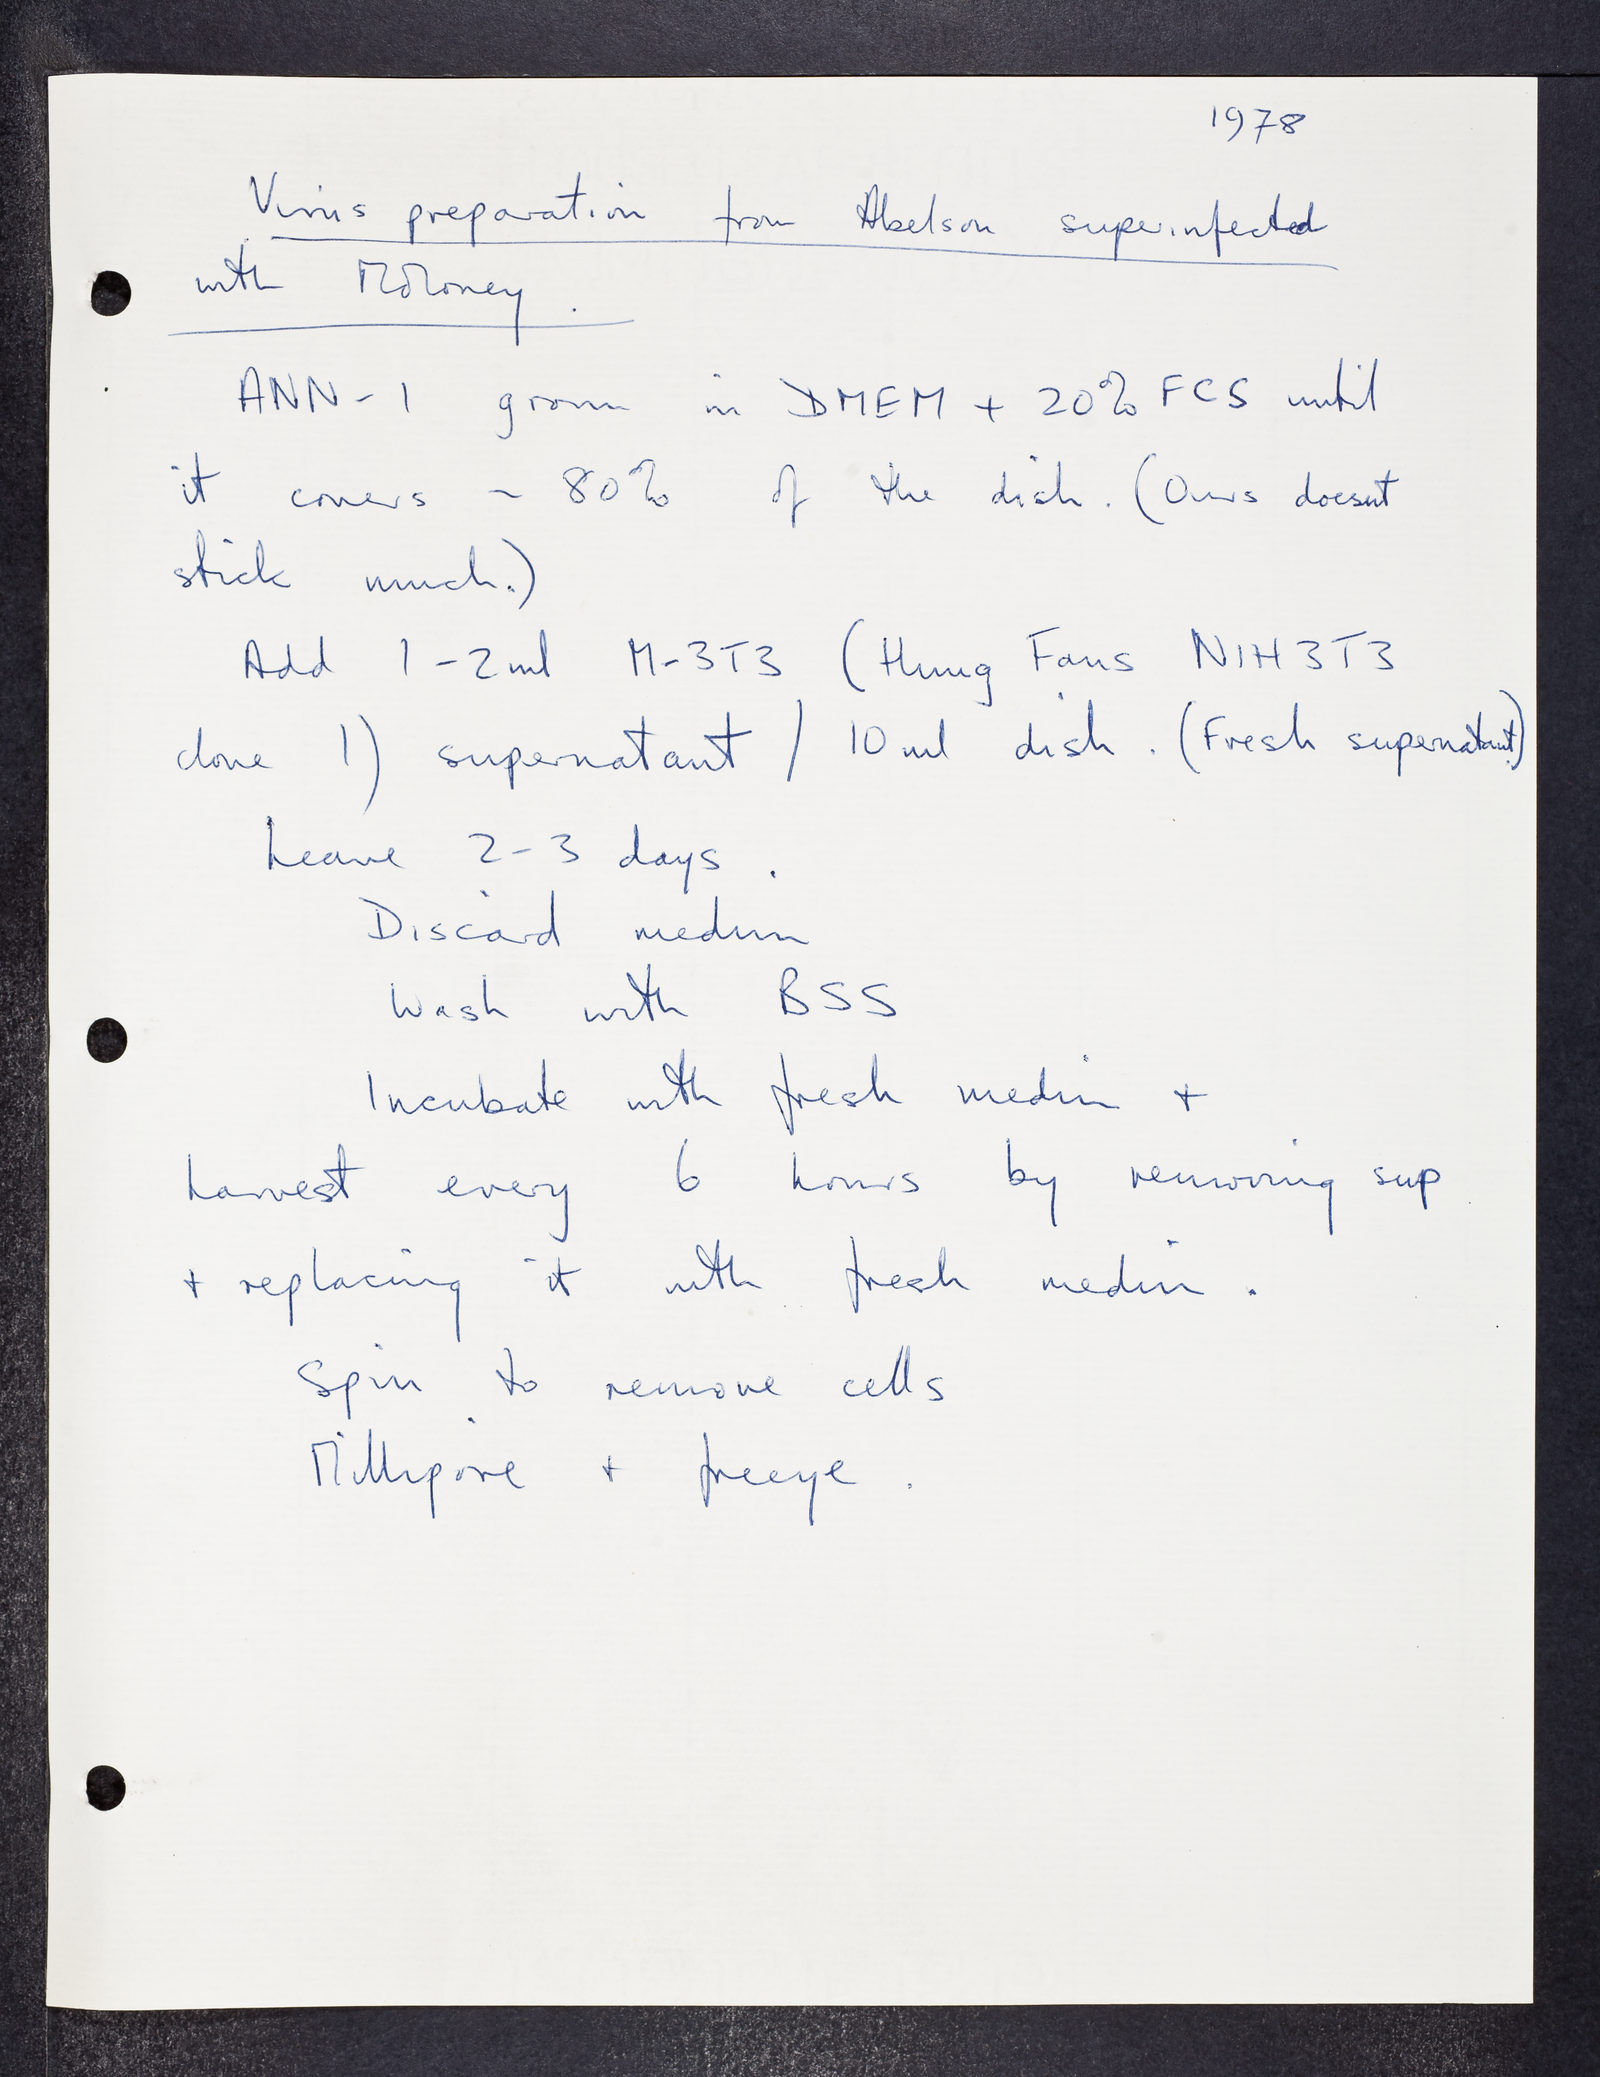 1978
Virus preparation from Abelson superinfected
with Moloney.
ANN-1 grown in DMEM + 20% FCS until
it covers ~ 80% of the dish. (Ours doesnt
stick much.)
Add 1-2ml M-3T3 (Hung Fans NIH3T3
clone 1) supernatant / 10ml dish. (Fresh supernatant)
Leave 2-3 days.
Discard medium
Wash with BSS
Incubate with fresh medium +
harvest every 6 hours by removing sup
+ replacing it with fresh medium.
Spin to remove cells
Millipore + freeze.